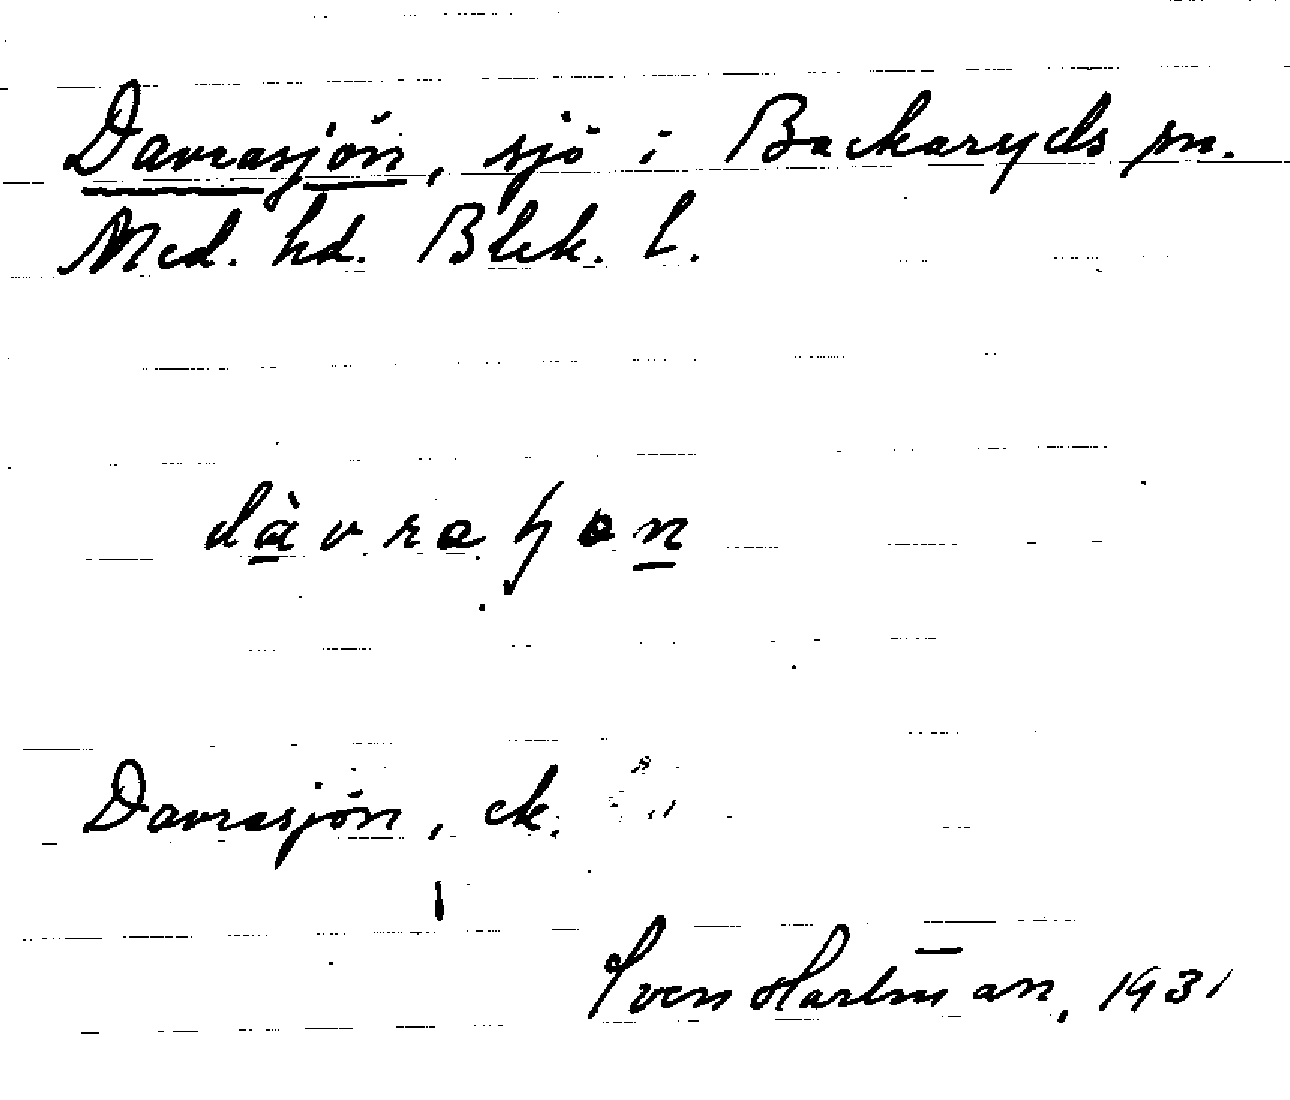 Davrasjön, sjö i Backaryds sn.
Med. hd. Blek. l.
dàvraɧən
Davrasjön, ek.
Sven Hartm̄an, 1931